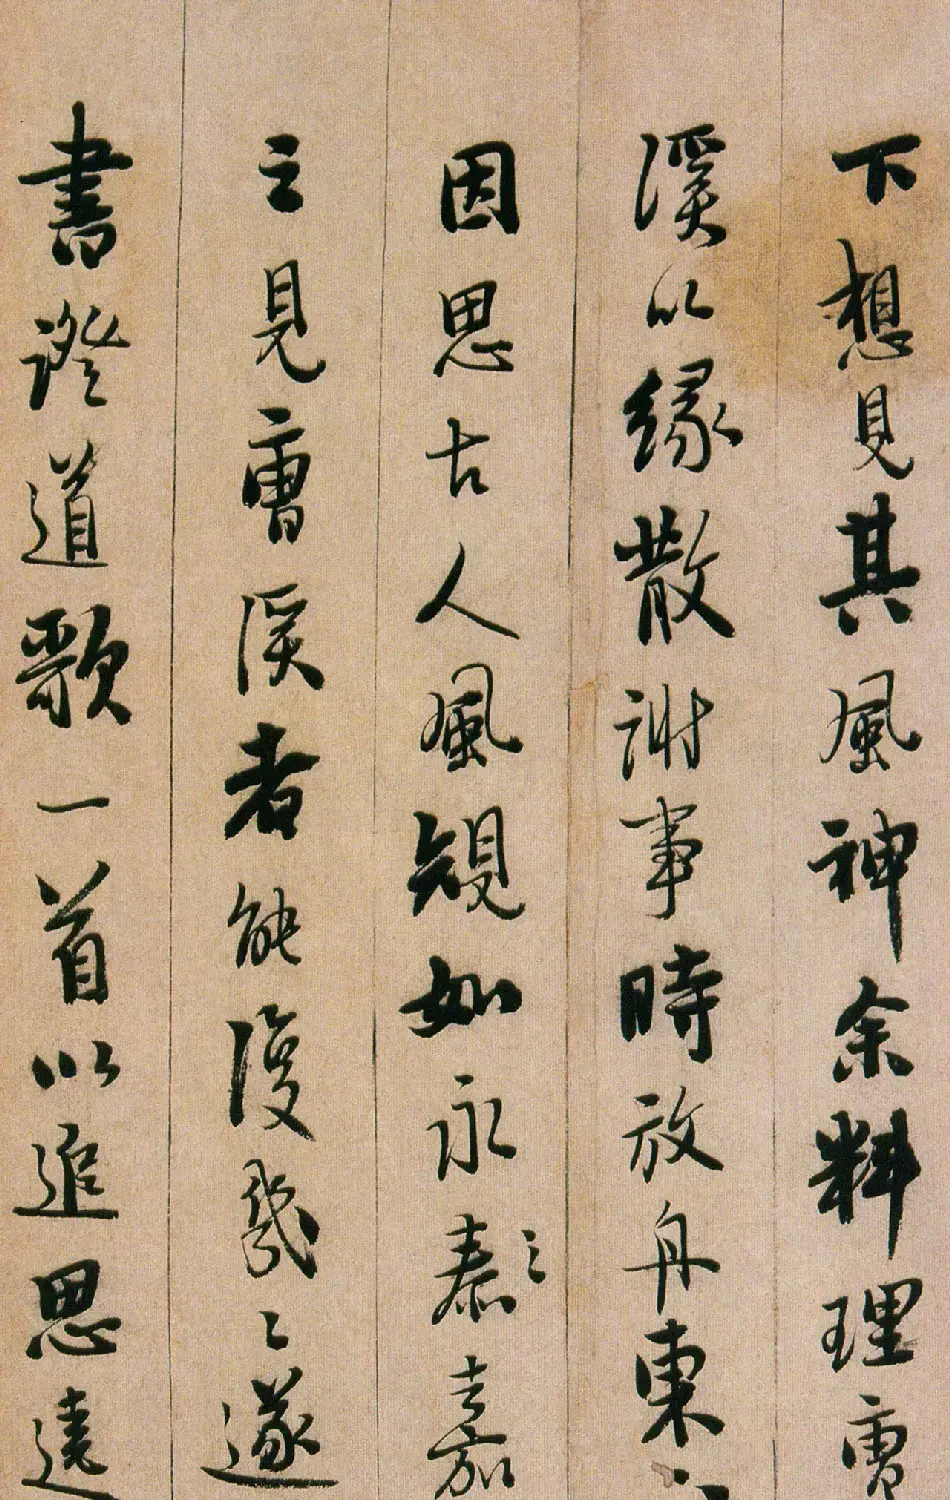 下想見其風神余料理曹
溪以緣散謝事時放舟東
因思古人風規如永泰之嘉
之見曹溪者能復幾〻遂
書證道歌一首以追思遠